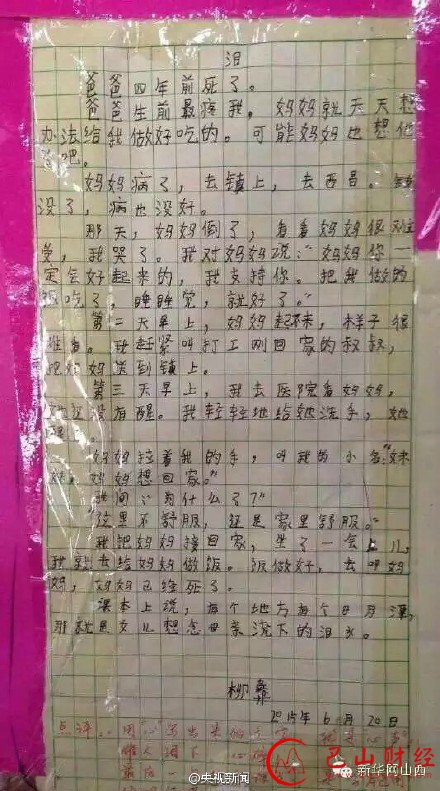 泪
爸爸四年前死了。
爸爸生前最疼我。妈妈就天天想
办法给我做好吃的。可能妈妈也想他
了吧。
妈妈病了，去镇上，去西昌。钱
没了，病也没好。
那天，妈妈倒了，看着妈妈很难
受，我哭了。我对妈妈说：“妈妈你一
定会好起来的，我支持你。把我做的
饭吃了，睡睡觉，就好了。”
第二天早上，妈妈起不来，样子很
难看。我赶紧叫打工刚回家的叔叔，
把妈妈送到镇上。
第三天早上，我去医院看妈妈，
她还没有醒。我轻轻地给她洗手，她
醒了。
妈妈拉着我的手，叫我的小名：“妹
妹，妈妈想回家。”
我问：“为什么了？”
“这里不舒服，还是家里舒服。”
我把妈妈接回家，坐了一会儿，
我就去给妈妈做饭。饭做好，去叫妈
妈，妈妈已经死了。
课本上说，有个地方有个日月潭，
那就是女儿想念母亲流下的泪水。
柳彝
2015年6月20日
点评：用“心”写出来的文字
@央视新闻
己山财经
新华网山西